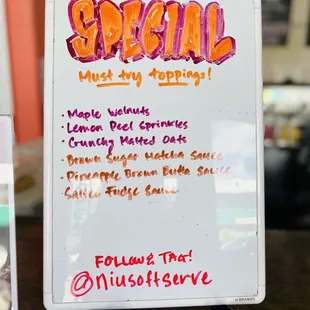 SPECIAL
Must try toppings!
· Maple Walnuts
· Lemon Peel Sprinkles
· Crunchy Malted Oats
· Brown Sugar Matcha Sauce
· Pineapple Brown Butta Sauce
· Salted Fudge Sauce
FOLLOW & TAG!
@niusoftserve